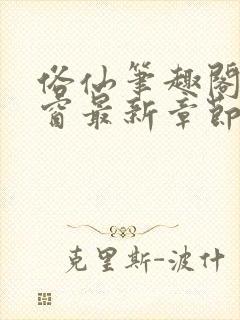 俗仙筆趣閣
窗最新章節
克里斯-波什